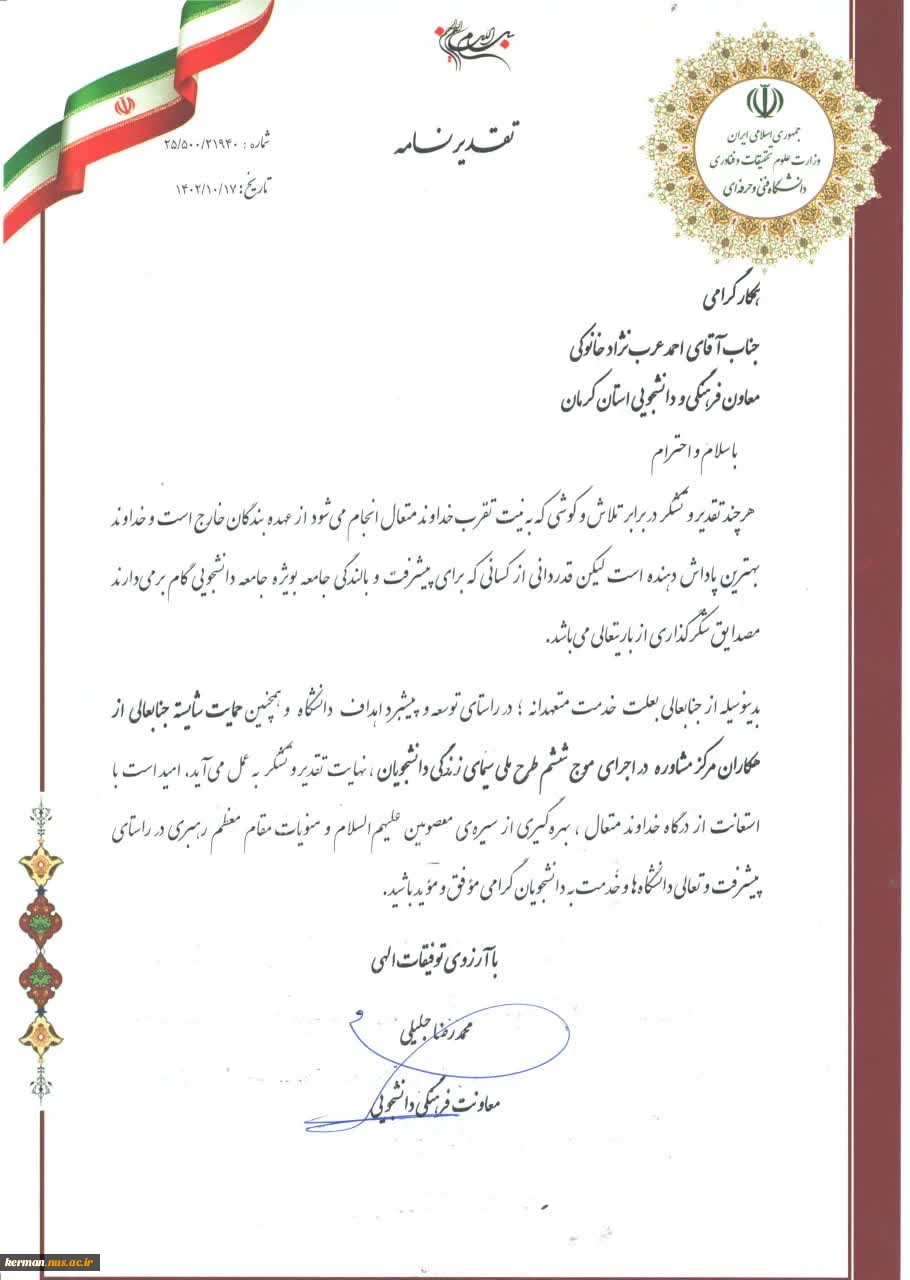 بسم الله الرحمن الرحیم
جمهوری اسلامی ایران
وزارت علوم تحقیقات و فناوری
دانشگاه فنی و حرفه‌ای
تقدیرنامه
شماره : ۲۵/۵۰۰/۲۱۹۴۰
تاریخ: ۱۴۰۲/۱۰/۱۷
همکار گرامی
جناب آقای احمد عرب نژاد خانوکی
معاون فرهنگی و دانشجویی استان کرمان
با سلام و احترام
هرچند تقدیر و تشکر در برابر تلاش و کوشی که به نیت تقرب خداوند متعال انجام می‌شود از عهده بندگان خارج است و خداوند
بهترین پاداش دهنده است لیکن قدردانی از کسانی که برای پیشرفت و بالندگی جامعه بویژه جامعه دانشجویی گام برمی‌دارند
مصدایق شکرگذاری از باریتعالی می‌باشد.
بدینوسیله از جنابعالی بعلت خدمت متعهدانه ؛ در راستای توسعه و پیشبرد اهداف دانشگاه و همچنین حمایت شایسته جنابعالی از
همکاران مرکز مشاوره در اجرای موج ششم طرح ملی سیمای زندگی دانشجویان ، نهایت تقدیر و تشکر به عمل می‌آید. امید است با
استعانت از درگاه خداوند متعال ، بهره‌گیری از سیره‌ی معصومین علیهم السلام و منویات مقام معظم رهبری در راستای
پیشرفت و تعالی دانشگاه‌ها و خدمت به دانشجویان گرامی مؤفق و مؤید باشید.
با آرزوی توفیقات الهی
محمدرضا جلیلی
معاونت فرهنگی دانشجویی
kerman.nus.ac.ir